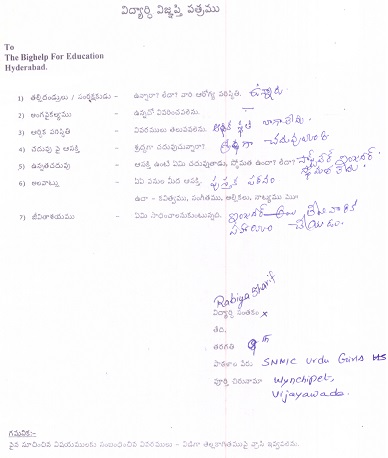 విద్యార్థి విజ్ఞప్తి పత్రము
To
The Bighelp For Education
Hyderabad.
1) తల్లిదండ్రులు / సంరక్షకుడు - ఉన్నారా? లేదా? వారి ఆరోగ్య పరిస్థితి. ఉన్నారు
2) అంగవైకల్యము - ఉన్నచో వివరించవలెను.
3) ఆర్థిక పరిస్థితి - వివరములు తెలుపవలెను. ఆర్థిక స్థితి బాగాలేదు.
4) చదువు పై ఆసక్తి - శ్రద్ధగా చదువుచున్నారా? శ్రద్ధగా చదువుతాను
5) ఉన్నతచదువు - ఆసక్తి ఉంటే ఏమి చదువుతాడు, స్తోమత ఉందా? లేదా? సాఫ్ట్‌వేర్ ఇంజనీర్
స్తోమత లేదు.
6) అలవాట్లు - ఏఏ పనుల మీద ఆసక్తి. పుస్తక పఠనం
ఉదా - కవిత్వము, సంగీతము, అల్లికలు, నాట్యము మొ॥
7) జీవితాశయము - ఏమి సాధించాలనుకుంటున్నాడు. ఇంజనీర్
చేయడం.
Rabiya Sharif
విద్యార్థి సంతకం x
తేది,
తరగతి 9th
పాఠశాల పేరు SNMC Urdu Girls HS
పూర్తి చిరునామా Wynchipet,
Vijayawada.
గమనిక:-
పైన సూచించిన విషయములకు సంబంధించిన వివరములు - విడిగా తెల్లకాగితముపై వ్రాసి ఇవ్వవలెను.